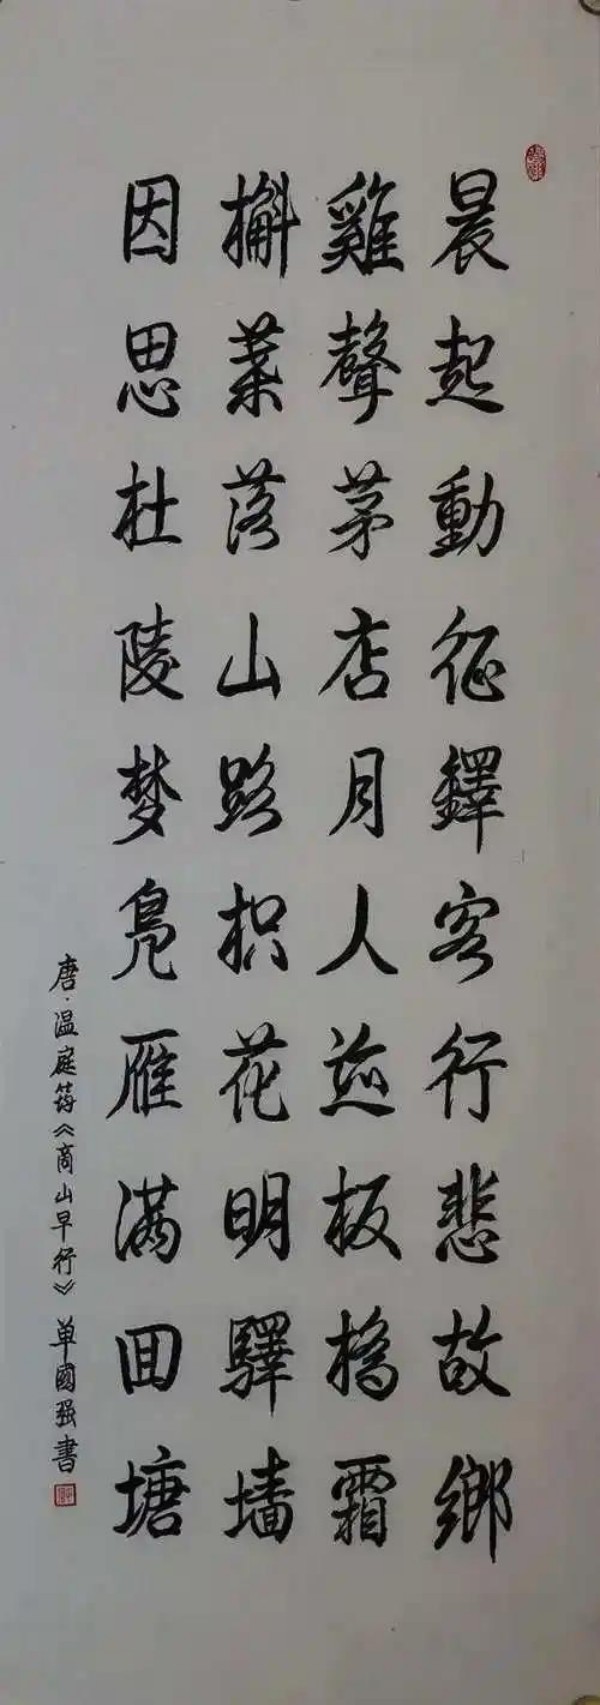 晨起動征鐸客行悲故鄉
雞聲茅店月人迹板橋霜
槲葉落山路枳花明驛墙
因思杜陵梦凫雁满回塘
唐·温庭筠《商山早行》单國强書